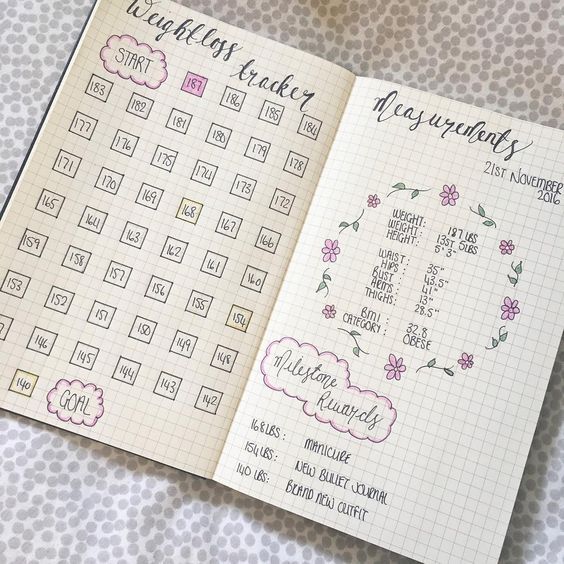 Weightloss
tracker
START
187 186 185 184
183 182 181 180 179 178
177 176 175 174 173 172
171 170 169 168 167 166
165 164 163 162 161 160
159 158 157 156 155 154
153 152 151 150 149 148
146 145 144 143 142
140 GOAL
Measurements
21ST NOVEMBER
2016
WEIGHT: 187 LBS
WEIGHT: 13ST 5LBS
HEIGHT: 5' 3"
WAIST: 35"
HIPS: 43.5"
BUST: 41"
ARMS: 13"
THIGHS: 28.5"
BMI: 32.8
CATEGORY: OBESE
Milestone
Rewards
168LBS: MANICURE
154LBS: NEW BULLET JOURNAL
140 LBS: BRAND NEW OUTFIT